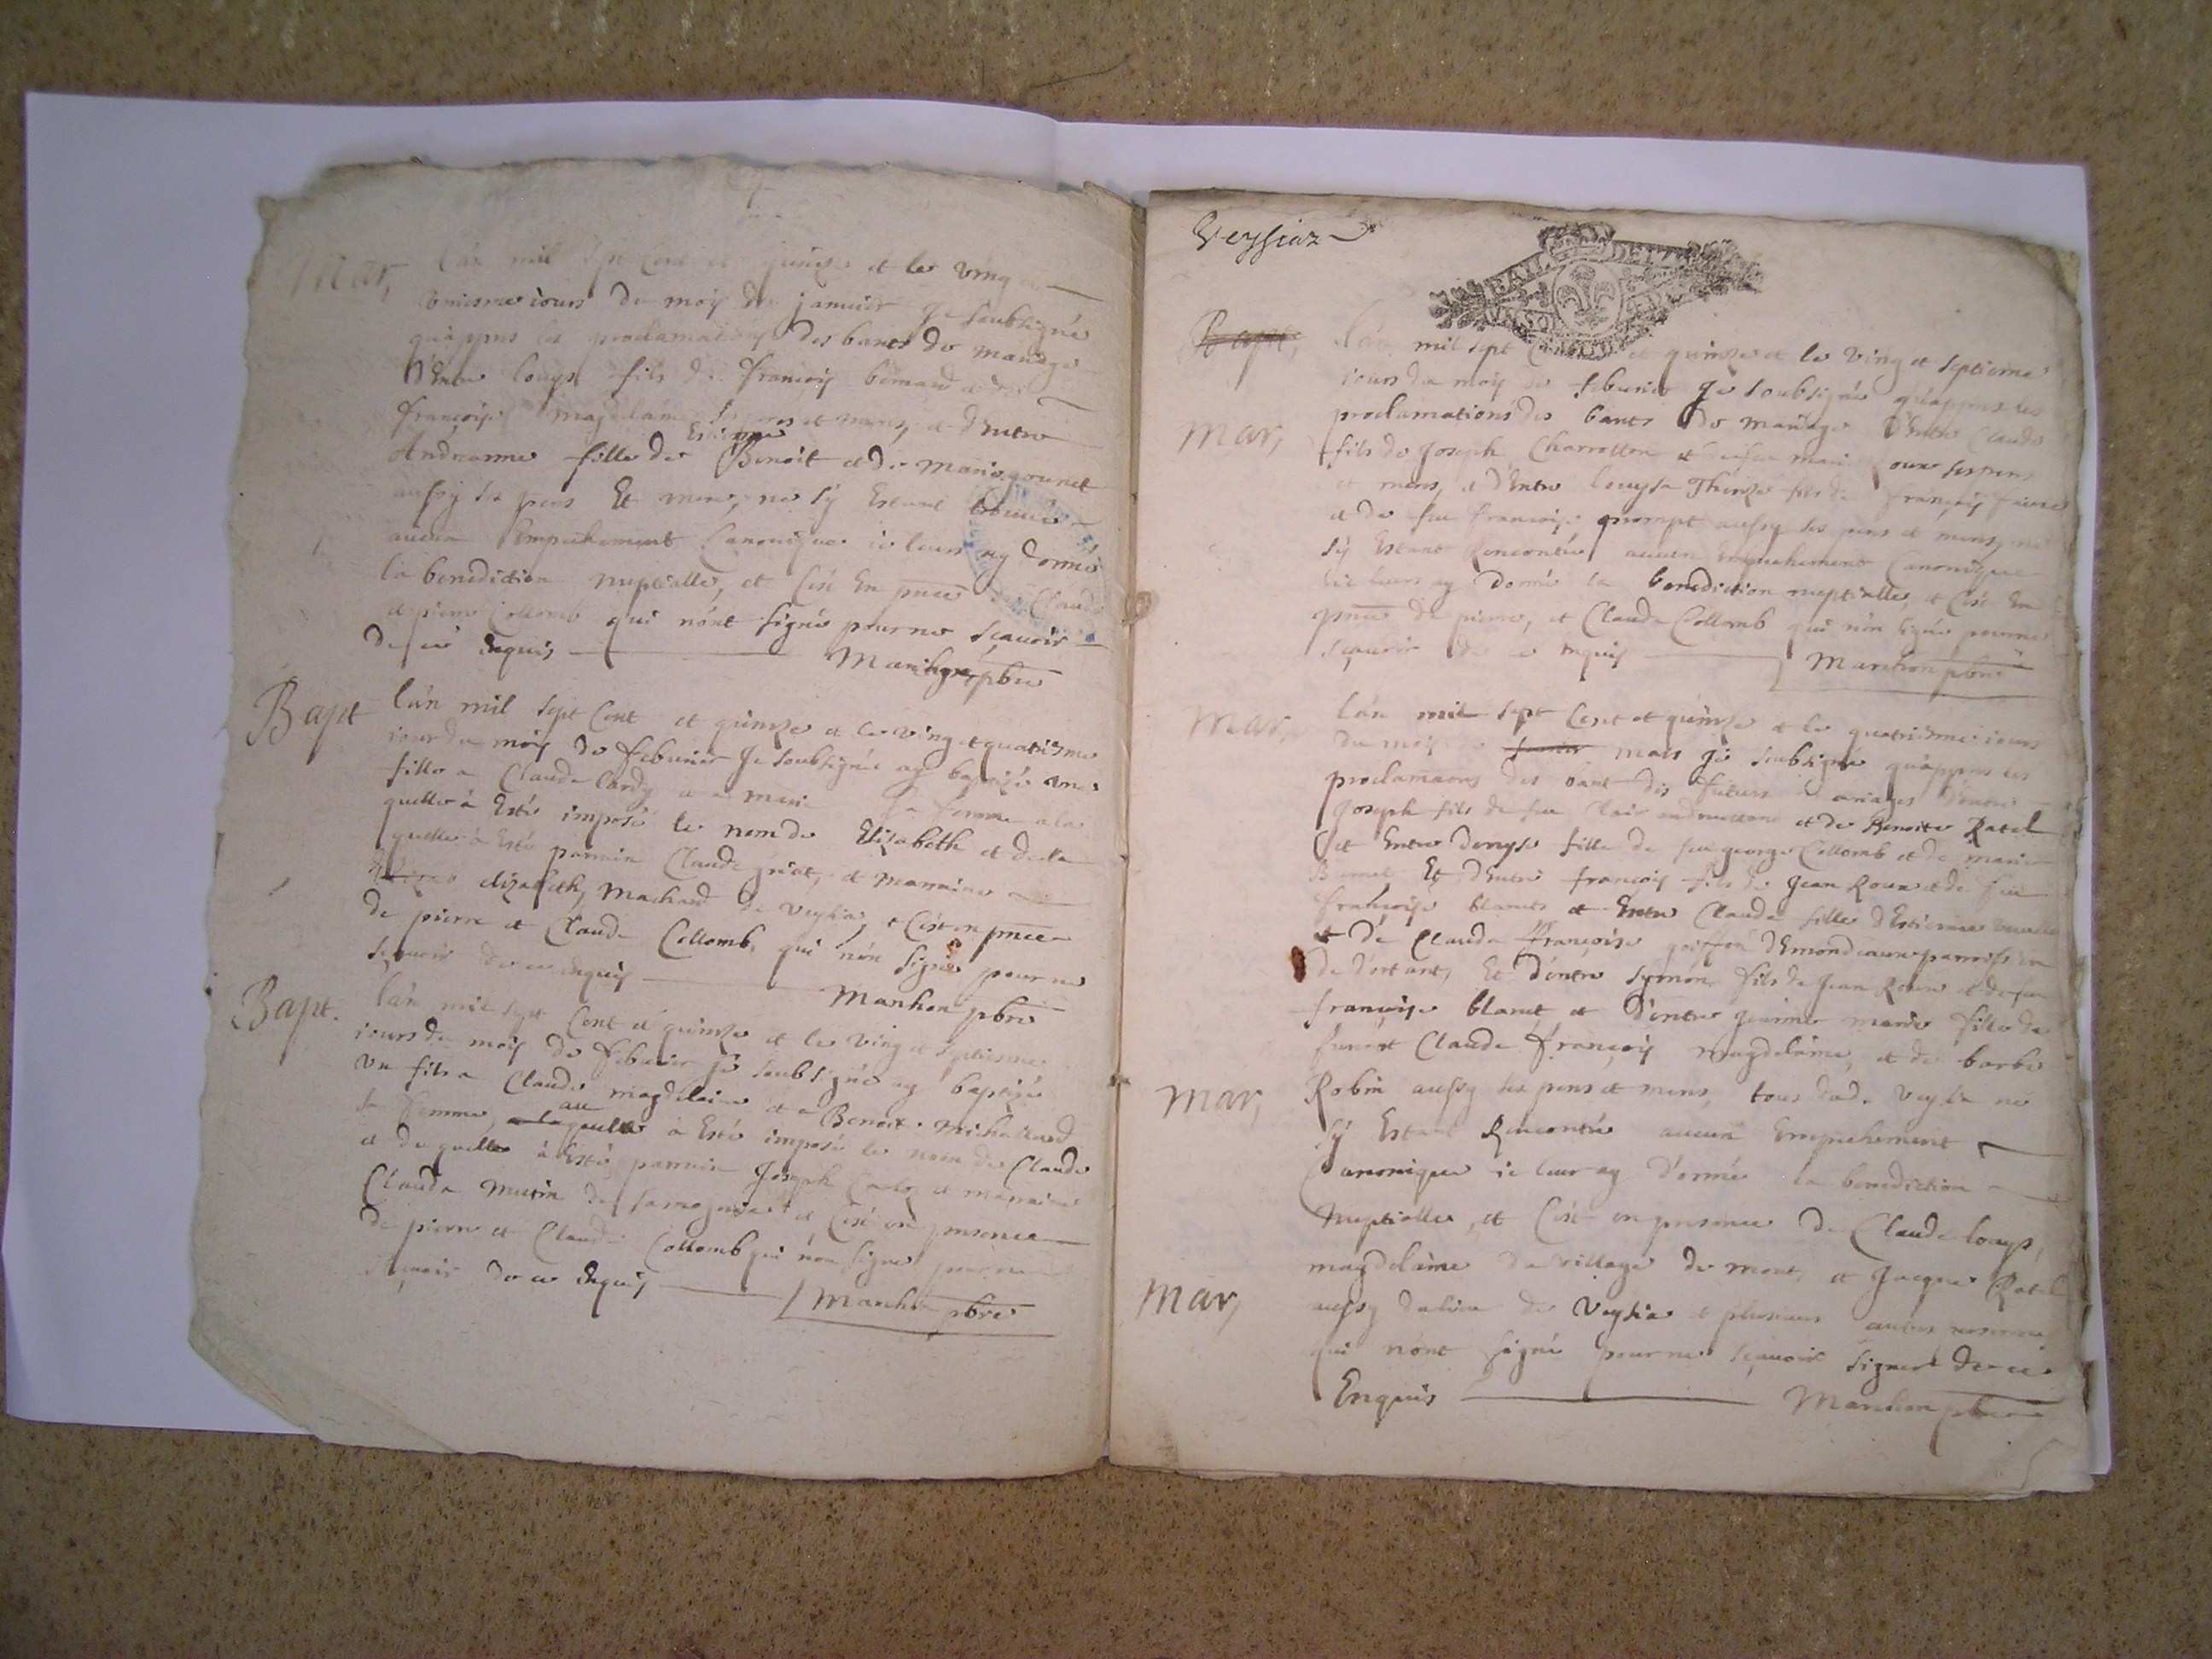 Mar,
L'an mil sept cent et quinze et le ving et
uniesme iours du mois de januier je soubsigné
qu'appres les proclamations des bancs de mariage
D'Entre Louys fils de françois bernard et de
françoise magdelaine ses peres et meres, et d'Entre
Estienne
Andreanne fille de Benoit et de Marie gounet
aussy ses peres Et meres, ne sy Estant trouué
aucun Empechement Canonique ie leurs ay donné
la benediction nuptialle, et C'est En pnce de Claude
et pierre Collomb qui n'ont signé pour ne sçauoir
de ce Enquis Marchon pbre
Bapt
L'an mil sept Cent et quinze et le ving et quatriesme
iour du mois de feburier Je soubsigné ay baptizé une
fille a Claude Lardy et a Marie sa femme a la
quelle à Esté imposé le nom de Elizabeth et de la
quelle à Esté parrain Claude griat, et marraine
elizabeth Machard de veysia, et C'est en pnce
de pierre et Claude Collomb qui n'ón signé pour ne
sçauoir de ce enquis Marchon pbre
Bapt.
L'an mil sept Cent et quinze et le ving et septiesme
iours du mois de feburier je soubsigné ay baptizé
un fils a Claude magdelaine et a Benoit Michalland
au
sa femme, a la quelle à Esté imposé le nom de Claude
et du quelle à Esté parrain Joseph et marraine
Claude Mutin de Samognia et C'est en presence
de pierre et Claude Collomb qui n'on signé pour ne
sçauoir de ce Enquis Marchon pbre
Veyssiaz
Bapt,
L'an mil sept Cent et quinze et le ving et septieme
iours du mois de feburier Je soubsigné qu'appres les
Mar,
proclamations des bancs de mariage D'Entre Claude
fils de Joseph Charrotton et de feu marie Roux ses peres
et meres, et d'Entre Louyse Thereze fils de françois faure
et de feu françoise prompt aussy ses peres et meres, ne
sy Estant Rencontré aucun Empechement Canonique
ie leurs ay donné la benediction nuptialle, et C'est En
pnce de pierre, et Claude Collomb qui n'ón signé pour ne
sçauoir de ce enquis Marchon pbre
Mar,
L'an mil sept Cent et quinze et le quatriesme iours
du mois de mars je soubsigné qu'appres les
proclamaons des banc des futurs mariages d'entre
Joseph fils de feu Clair et de Benoite Ratel
Et Entre Denyse fille de feu george Collomb et de marie
Et D'Entre françois fils de Jean Roux et de feu
françoise blanct et Entre Claude fille d'Estienne
et de Claude françoise parroisse
de Dortant, Et D'entre symon fils de Jean Roux et de feu
françoise blanct et D'entre marie fille de
funent Claude françois magdelaine, et de barbe
Mar,
Robin aussy ses peres et meres, tous dud. Veysia ne
sy Estant Rencontré aucun Empechement
Canonique ie leur ay Donné la benediction
Nuptialle, et C'est en presence de Claude Louys,
magdelaine du village de mont, et Jacque Ratel
Mar,
aussy dulieu de Veysia et plusieurs autres
qui n'ont signé pour ne sçauoir signer de ce
Enquis Marchon pbre